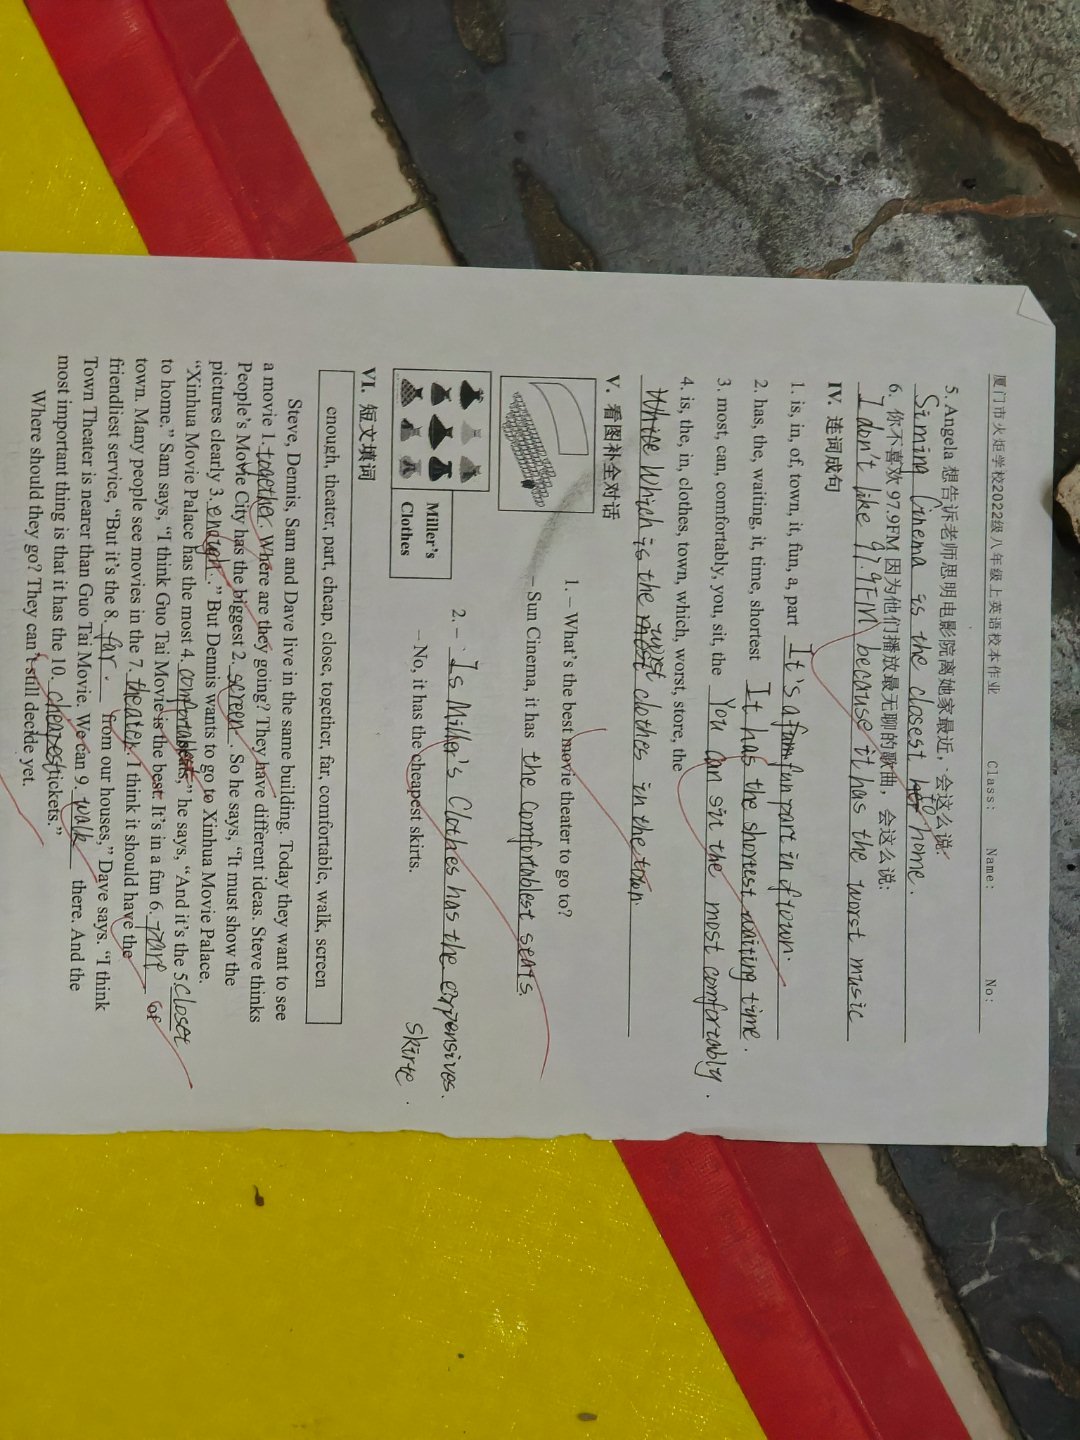 厦门市火炬学校2022级八年级上英语校本作业 Class: Name: No:
5. Angela 想告诉老师思明电影院离她家最近，会这么说:
Siming Cinema is the closest to home.
6. 你不喜欢 97.9FM 因为他们播放最无聊的歌曲，会这么说:
I don't like 97.9FM because it has the worst music
IV. 连词成句
1. is, in, of, town, it, fun, a, part It's a fun part in of town.
2. has, the, waiting, it, time, shortest It has the shortest waiting time.
3. most, can, comfortably, you, sit, the You can sit the most comfortably.
4. is, the, in, clothes, town, which, worst, store, the
Which is the worst clothes in the town.
V. 看图补全对话
1. – What's the best movie theater to go to?
– Sun Cinema, it has the comfortablest seats.
Miller's
Clothes
2. – Is Miller's Clothes has the expensives.
skirte.
– No, it has the cheapest skirts.
VI. 短文填词
enough, theater, part, cheap, close, together, far, comfortable, walk, screen
Steve, Dennis, Sam and Dave live in the same building. Today they want to see
a movie 1. together. Where are they going? They have different ideas. Steve thinks
People's Movie City has the biggest 2. screen. So he says, "It must show the
pictures clearly 3. ." But Dennis wants to go to Xinhua Movie Palace.
"Xinhua Movie Palace has the most 4. seats," he says, "And it's the 5. closet
to home." Sam says, "I think Guo Tai Movie is the best. It's in a fun 6. part of
town. Many people see movies in the 7. theater. I think it should have the
friendliest service, "But it's the 8. far. from our houses," Dave says. "I think
Town Theater is nearer than Guo Tai Movie. We can 9. walk there. And the
most important thing is that it has the 10. cheapest tickets."
Where should they go? They can't still decide yet.